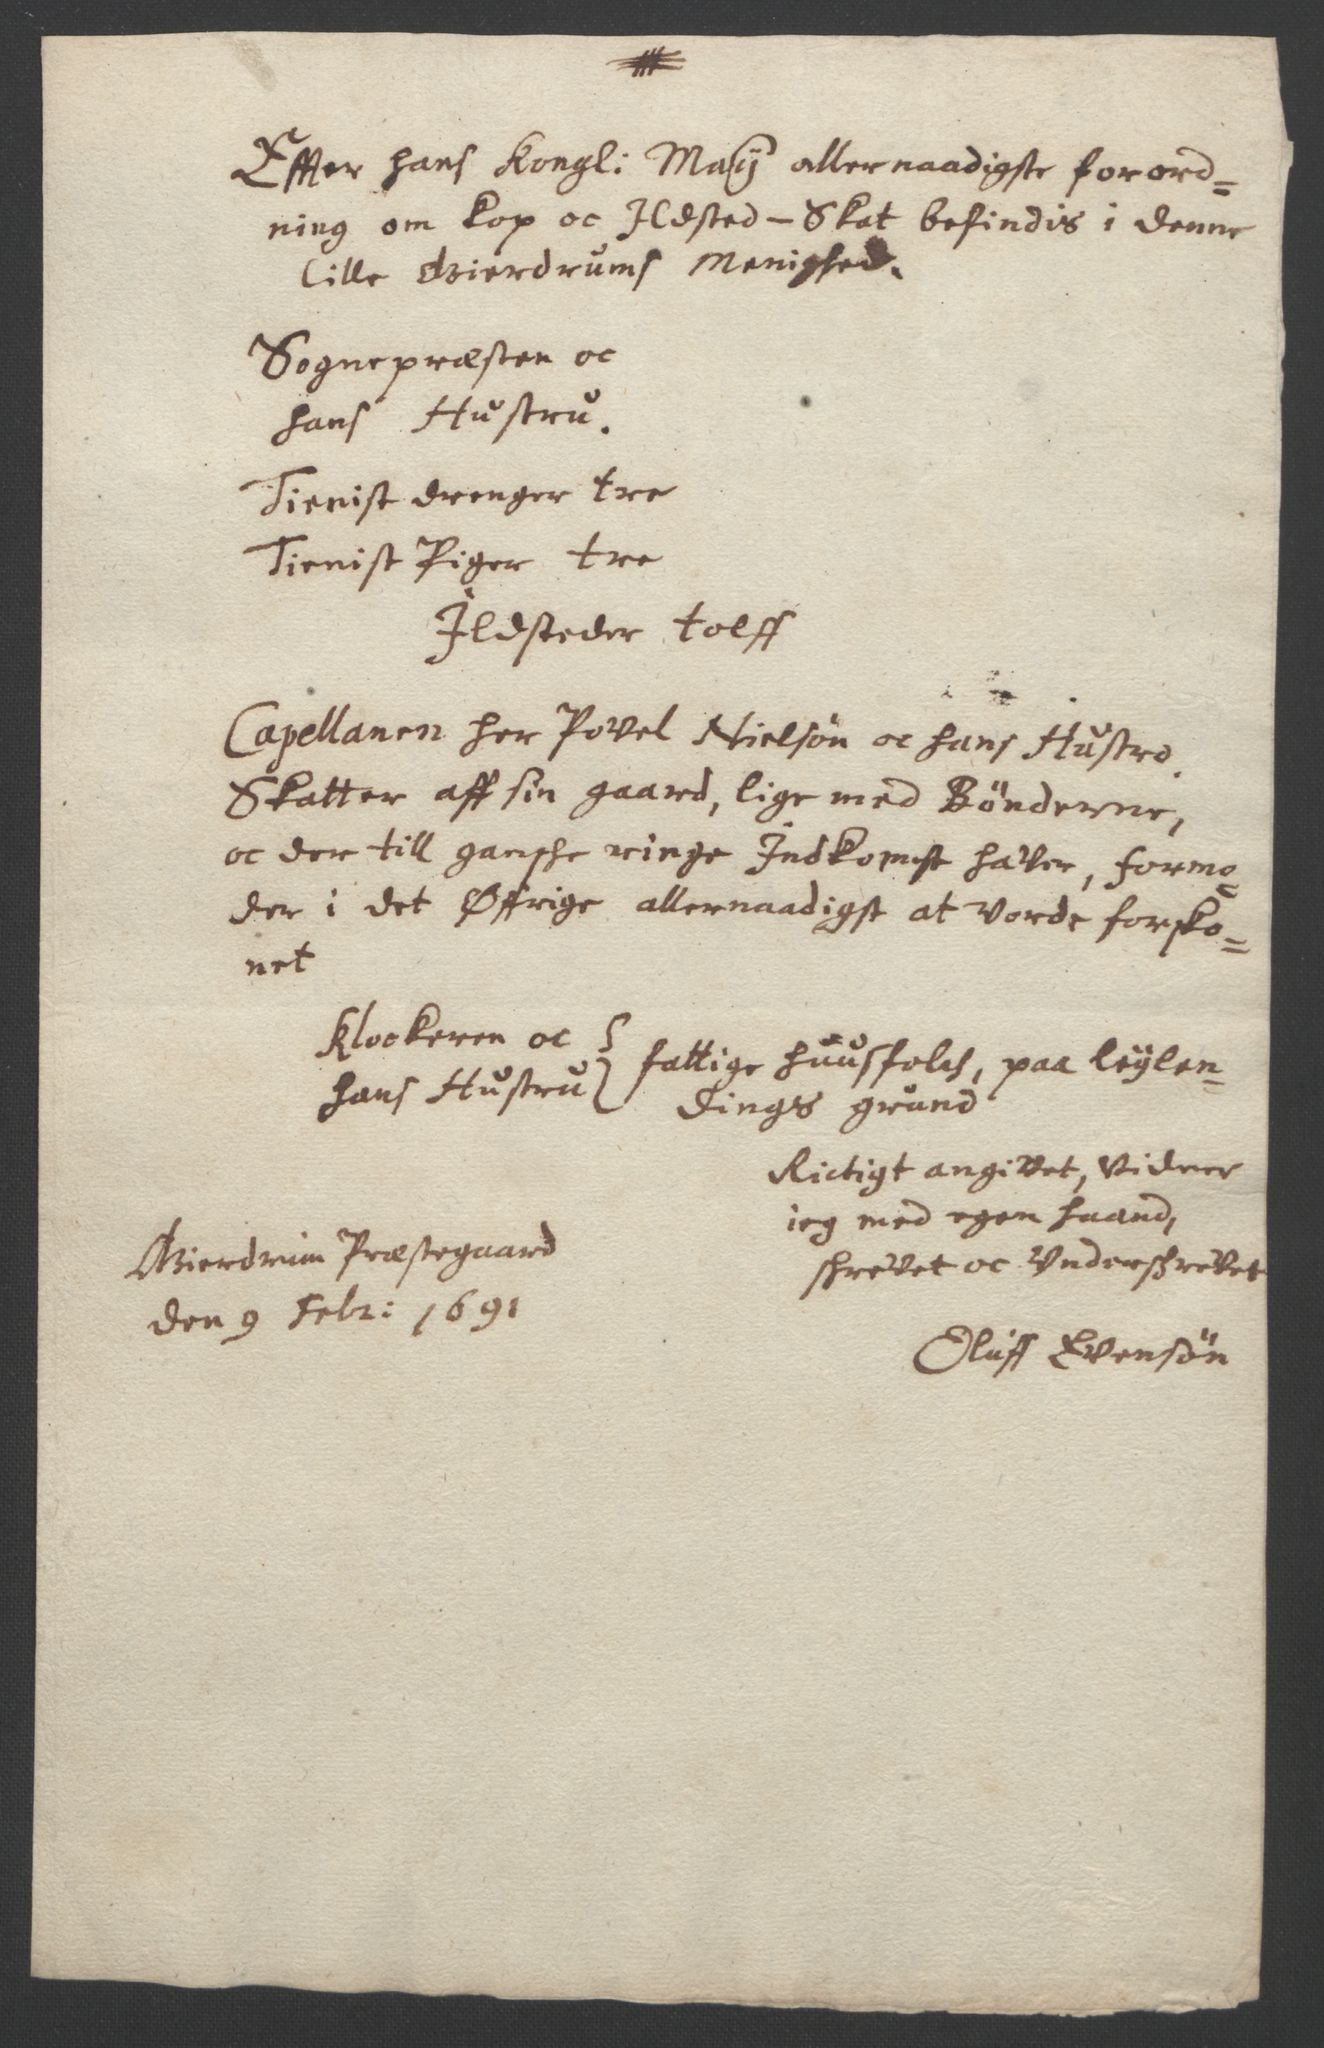 Effter hans Kongli: May allernaadigste forord=
ning om Kop oc Ildsted-Skat befindis i denne
lille Gierdrums Menighed.
Sognepræsten oc
hans Hustru.
Tienist drenger tre
Tienist Piger tre
Ildsteder tolff
Capellanen her Povel Nielsön oc hans Hustro.
Skatter aff sin gaard, lige med Bönderne,
oc der till gansche ringe Indkomst haver, formo=
der i det Øffrige allernaadigst at vorde forsko=
net
Klockeren oc
hans Hustru } fattige huusfolch, paa leÿlen=
dings grund
Rictigt angivet, vidner
ieg med egen haand,
schrevet oc Underschrevet
Gierdrum Præstegaard
den 9 Febr: 1691
Oluff Evensön